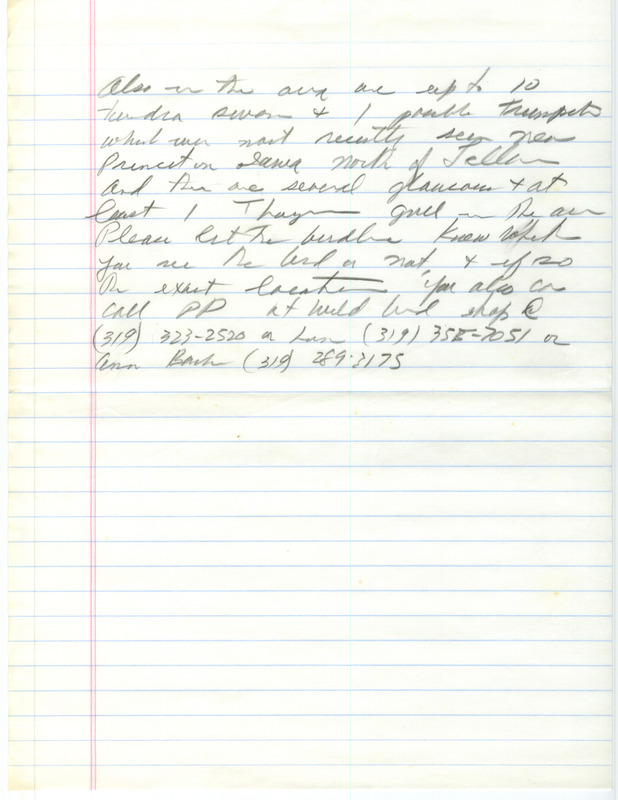 Also in the area are up to 10
tundra swans + 1 possible trumpeter
which were most recently seen near
Princeton Iowa north of
And there are several glaucous + at
least 1 Thayers gull in the area
Please let the birdline know whether
you see the bird or not, + if so
the exact location. You also can
call PP at wild bird shop @
(319) 323-2520 or (319) 355-7051 or
Ann Barker (319) 289-3175